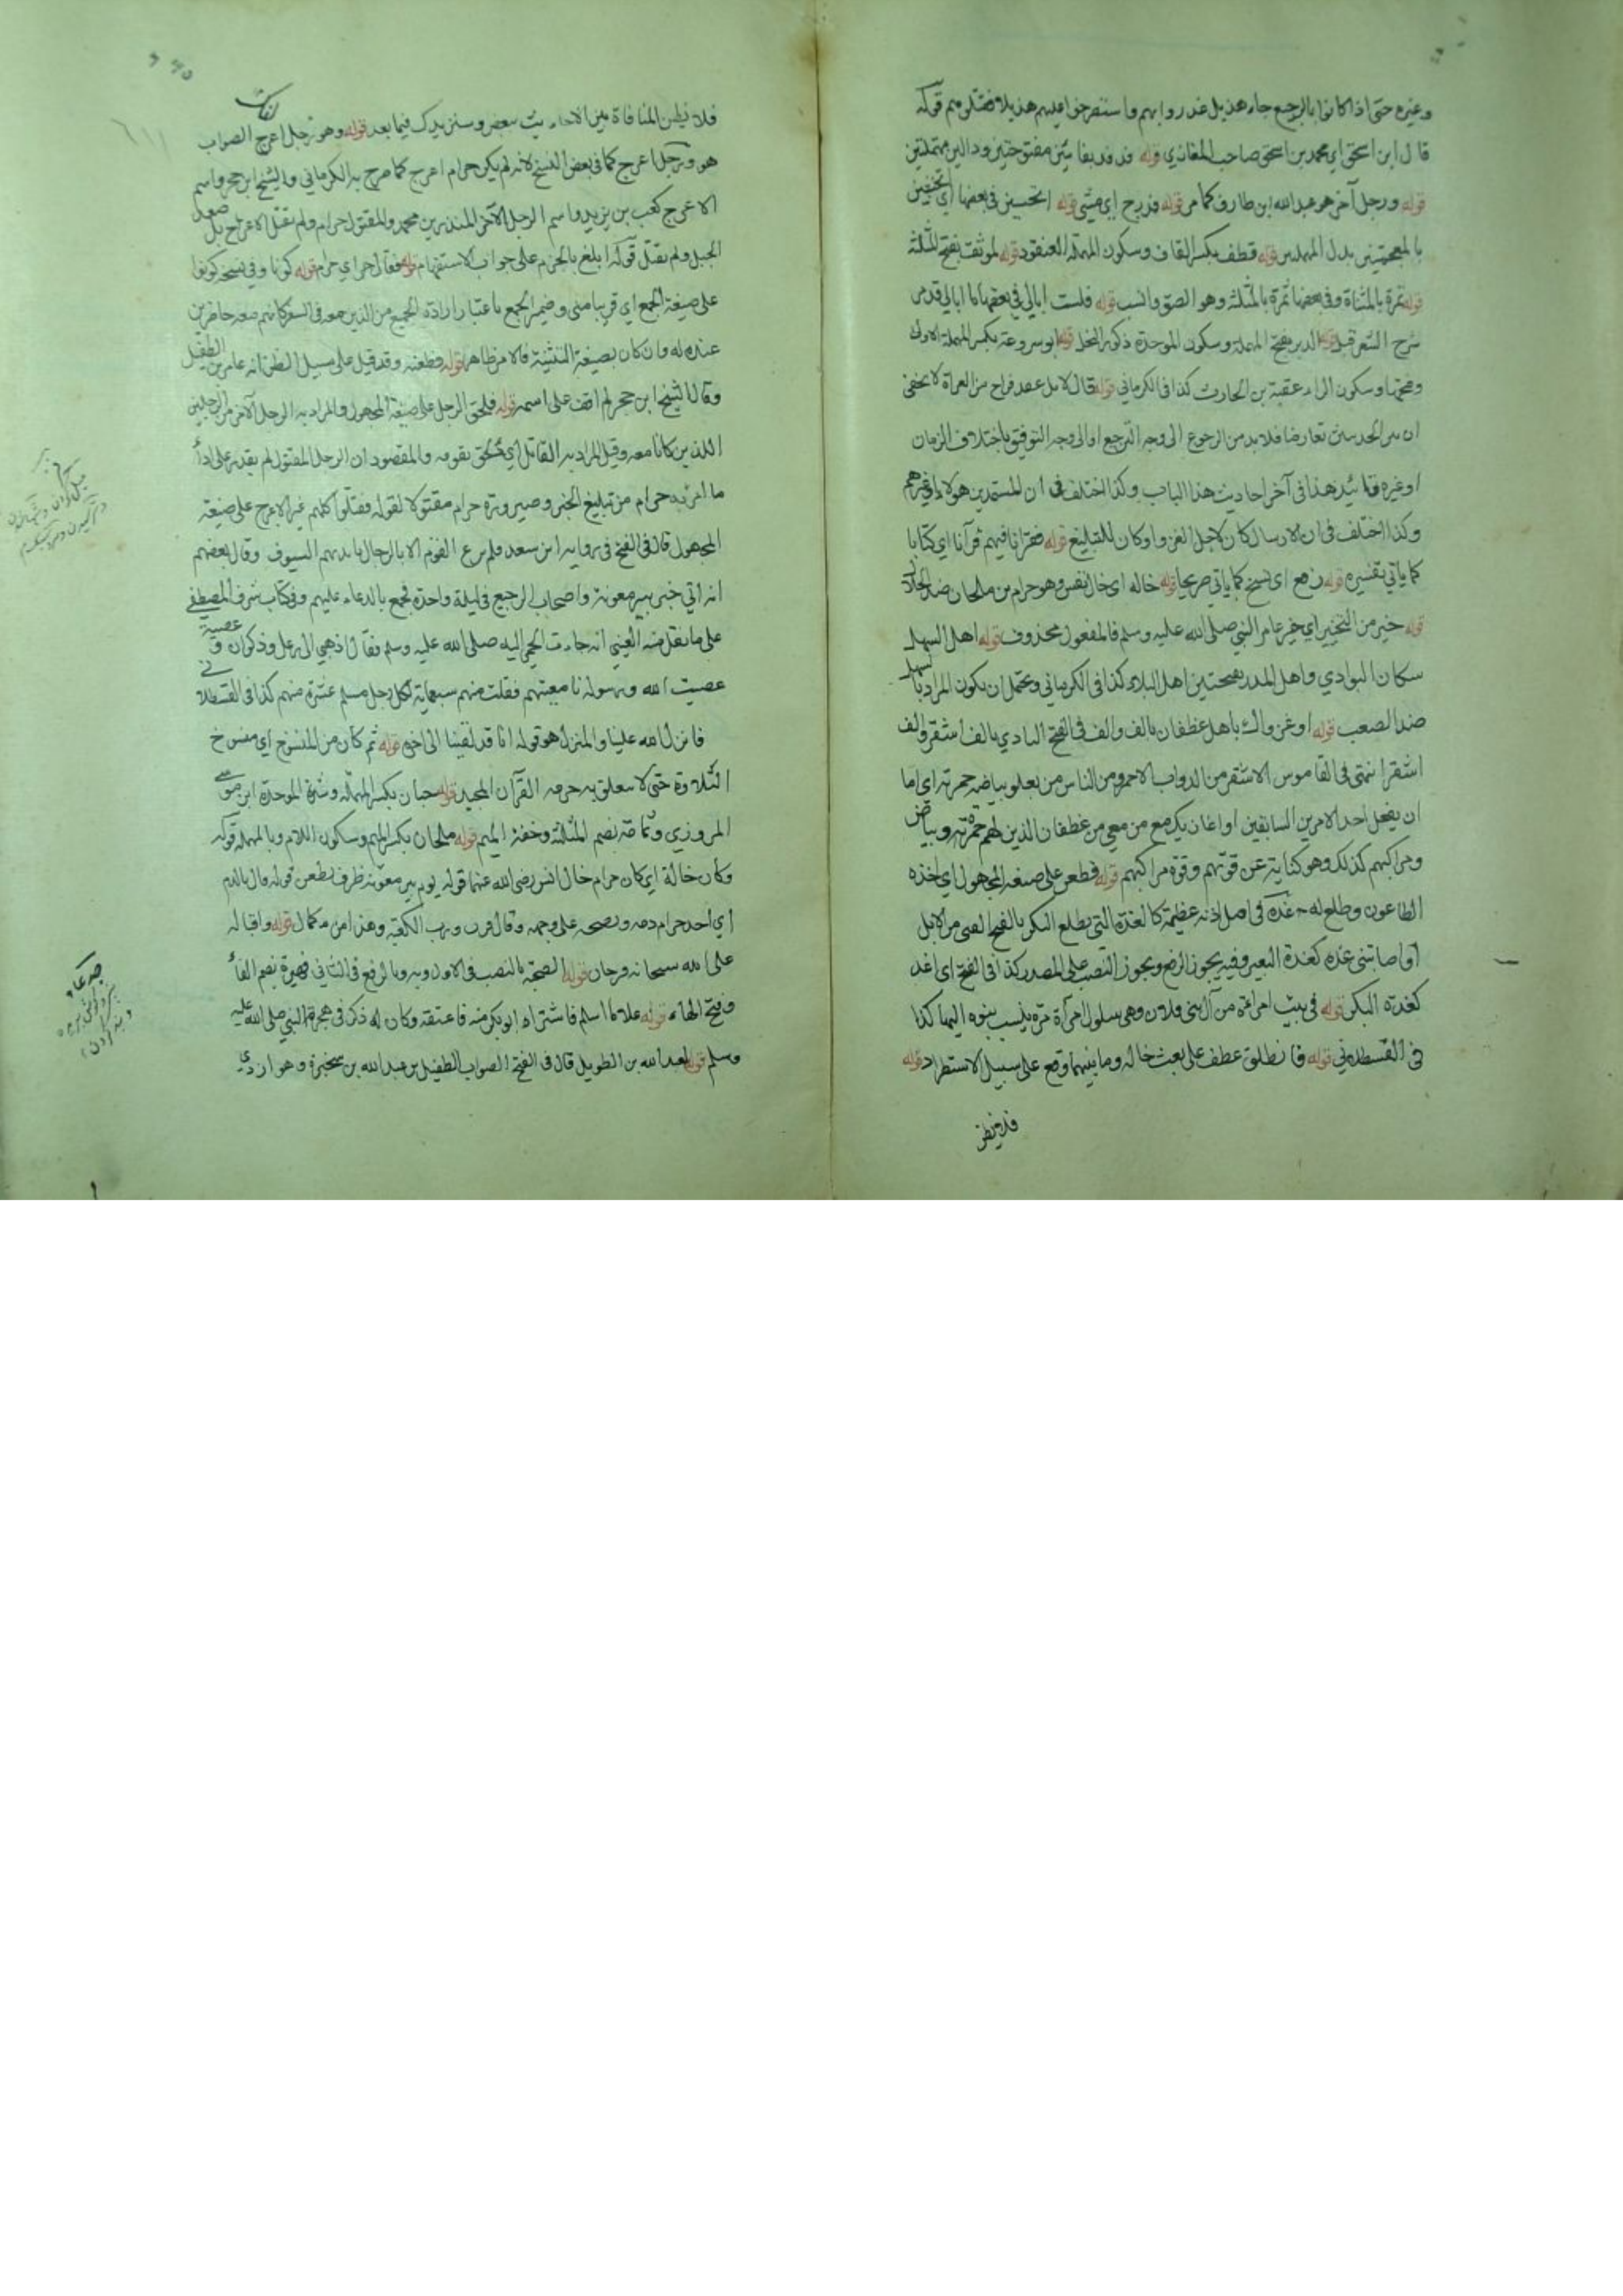 وغيره حتى اذا كانوا بالرجيع جاء هذيل غدروا بهم واستصرخوا عليهم هذيلا فقتلوهم قوله
قال ابن اسحق اي محمد بن اسحق صاحب المغازي قوله فدفد بفائين مفتوحتين ودالين مهملتين
قوله ورجل آخر هو عبد الله ابن طارف كما مر قوله فدرج اي مشى قوله اتحسبين في بعضها اي تخشين
بالمعجمتين بدل المهملتين قوله قطف بكسر القاف وسكون المهملة العنقود قوله لموثق بفتح المثلثة
قوله تمرة بالمثناة وفي بعضها ثمرة بالمثلثة وهو الصق وانسب قوله فلست ابالي في بعضها ما ابالي قد مر
شرح الشعر قبيل قوله الدبر بفتح المهملة وسكون الموحدة ذكور النحل قوله ابو سروعة بكسر المهملة الاولى
وفتحها وسكون الراء عقبة بن الحارث كذا في الكرماني قوله قال لا بل من الغزاة لا يخفى
ان بين الحديثين تعارضا فلا بد من الرجوع الى وجه الترجيع او الى وجه التوفيق باختلاف الزمان
او غيره هذا في آخر احاديث هذا الباب وكذا اختلف في ان المستمدين هؤلاء او غيرهم
وكذا اختلف في ان الارسال كان لاجل الغزو او كان للتبليغ قوله فقرانا فيهم قرآنا اي كتابا
كما ياتي تفسيره قوله رفع اي نسخ كما ياتي صريحا قوله خاله اي خال انس وهو حرام بن ملحان ضد الحلال
قوله خير من التخيير اي خير عامر النبي صلى الله عليه وسلم فالمفعول محذوف قوله اهل السهل
سكان البوادي واهل المدر بفتحتين اهل البلاد كذا في الكرماني ويحتمل ان يكون المراد بالسهل
ضد الصعب قوله او اغزواك باهل غطفان بالف والف في الفتح البادي بالف اشقر والف
اشقرا انتهى في القاموس الاشقر من الدواب الاحمر ومن الناس من يعلو بياضه حمرته اي اما
ان يفعل احد الامرين السابقين او اغار بك مع من معي من غطفان الذين لهم حمرة وبياض
ومراكبهم كذلك وهو كناية عن قوتهم وقوة مراكبهم قوله فطعن على صيغة المجهول اي اخذه
الطاعون وطلع له غدة في اصل اذنه عظيمة كالغدة التي يطلع البكر بالفتح الفتى من الابل
او اصابتني غدة كغدة البعير وفيه يجوز الرفع ويجوز النصب على المصدر كذا في الفتح اي اغد
كغدة البكر قوله في بيت امراة من آل بني فلان وهي سلول امرأة مرة ينسب بنوه اليها كذا
في القسطلاني قوله فانطلق عطف على بعث خاله وما بينهما وقع على سبيل الاستطراد قوله
فلا يظن
فلا يظن المنافاة بين الاحاديث سنزيدك فيما بعد قوله وهو رجل اعرج الصواب
هو ورجل اعرج كما في بعض النسخ لانه لم يكن حرام اعرج كما صرح به الكرماني والشيخ ابن حجر واسم
الاعرج كعب بن يزيد واسم الرجل الآخر المنذر بن محمد والمقتول حرام ولم يقتل الاعرج بل صعد
الجبل ولم يقتل قوله ابلغ بالجزم على جواب الاستفهام قوله فقال حرام قوله كونا وفي نسخة كونوا
على صيغة الجمع اي قريبا مني وضمير الجمع باعتبار ارادة الجميع من الذين معه في السفر كانهم معه حاضرين
عنده له وان كان بصيغة التثنية فالامر ظاهر قوله فطعنه وقد قيل على سبيل الظن انه عامر بن الطفيل
وقال الشيخ ابن حجر لم اقف على اسمه قوله فلحق الرجل على صيغة المجهول والمراد به الرجل الآخر من الرجلين
اللذين كانا معه وقيل المراد به القاتل اي لحق بقومه والمقصود ان الرجل المقتول لم يقدر على اداء
ما امر به حرام من تبليغ الخبر وصيرورة حرام مقتولا لقوله فقتلوا كلهم غير الاعرج على صيغة
المجهول قال في الفتح في رواية ابن سعد فلم يرع القوم الا بالرجال بايديهم السيوف وقال بعضهم
انه اتي خبر بير معونة واصحاب الرجيع في ليلة واحدة فجمع بالدعاء عليهم وفي كتاب شرف المصطفى
على ما نقل منه العيني انه جاءت الحمى اليه صلى الله عليه وسلم فقال اذهبي الى رعل وذكوان وعصية
عصت الله ورسوله فقتلت منهم سبعماية لكل رجل مسلم عشرة منهم كذا في القسطلاني
فانزل الله علينا والمنزل هو قوله انا قد لقينا الى اخره قوله ثم كان من المنسوخ اي منسوخ
التلاوة حتى لا يتعلق به حرمة القرآن المجيد قوله حبان بكسر المهملة وشدة الموحدة ابن موسى
المروزي وثمامة بضم المثلثة وخفة الميم قوله ملحان بكسر الميم وسكون اللام وبالمهملة قوله
وكان خاله اي كان حرام خال انس رضي الله عنهما قوله يوم بير معونة ظرف لطعن قوله قال بالدم
اي اخذ حرام دمه ونضحه على وجهه وقال فزت ورب الكعبة وهذا من كمال قوله واقباله
على الله سبحانه فرحان قوله الصحبة بالنصب في الاول وبه وبالرفع في الثاني فهيرة بضم الفاء
وفتح الهاء قوله غلاما اسلم فاشتراه ابو بكر منه فاعتقه وكان له ذكر في هجرة النبي صلى الله عليه
وسلم قوله لعبد الله بن الطويل قال في الفتح الصواب الطفيل بن عبد الله بن سخبرة وهو ازدي